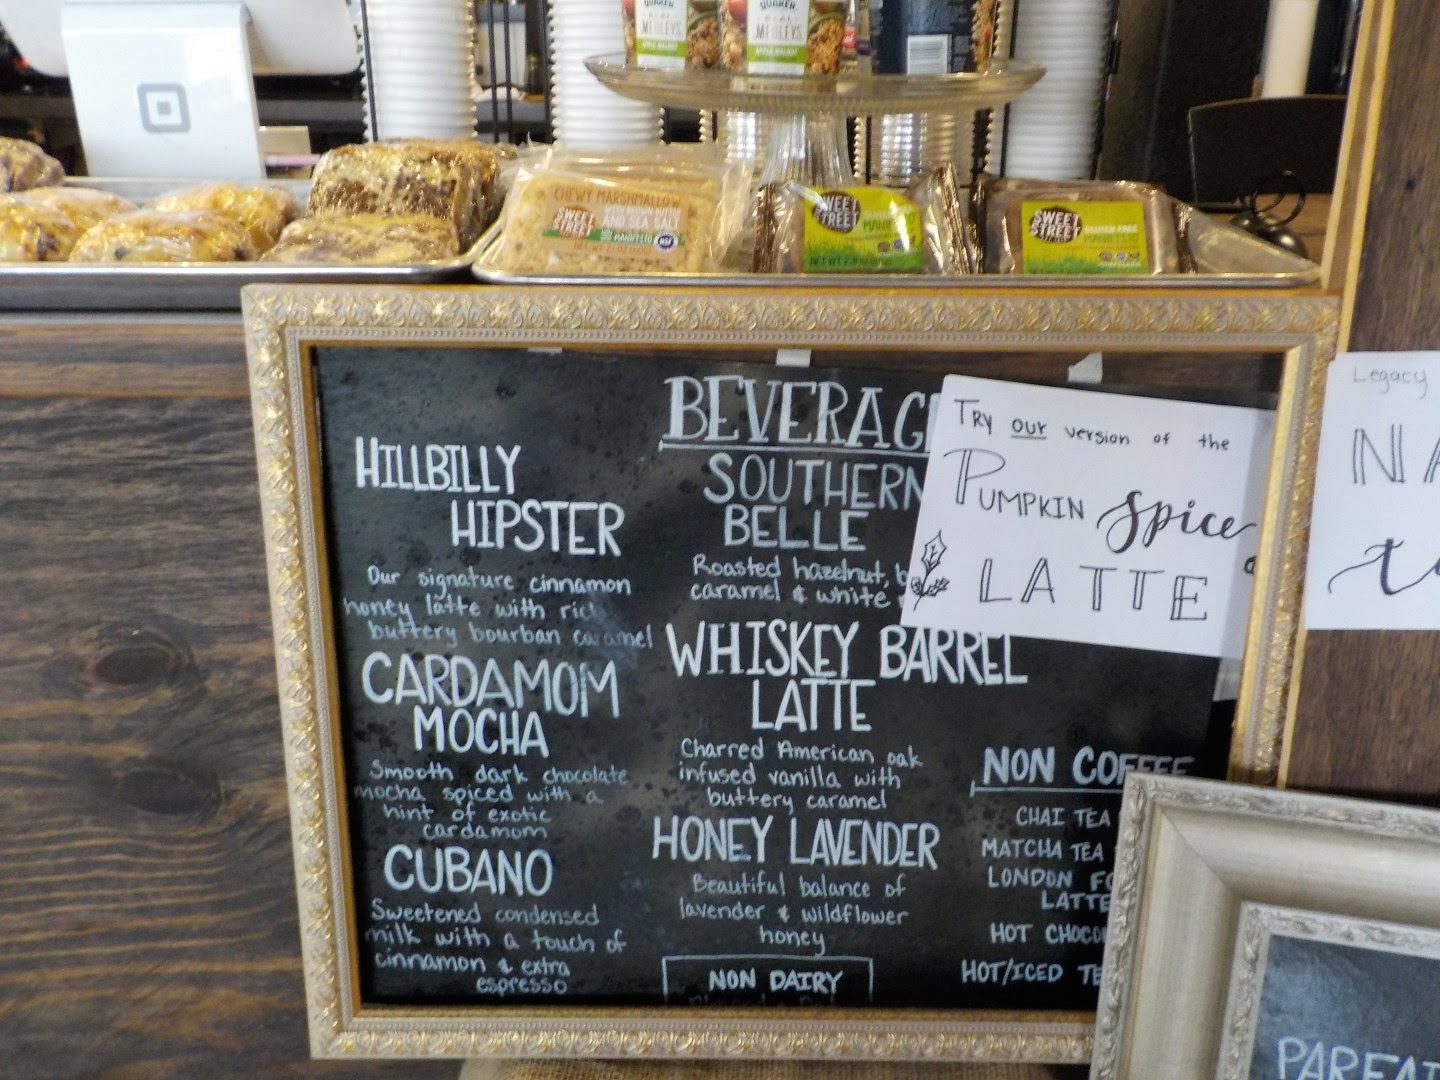 QUAKER
REAL
MEDLEYS
APPLE WALNUT
QUAKER
REAL
MEDLEYS
APPLE WALNUT
CHEWY MARSHMALLOW
AND SEA SALT
SWEET
STREET
MANIFESTO
NSF
SWEET
STREET
MANIFESTO
NET WT 2.8
SWEET
STREET
GLUTEN FREE
MANIFESTO
BEVERAG
HILLBILLY
HIPSTER
Our signature cinnamon
honey latte with rich
buttery bourban caramel
CARDAMOM
MOCHA
Smooth dark chocolate
mocha spiced with a
hint of exotic
cardamom
CUBANO
Sweetened condensed
milk with a touch of
cinnamon & extra
espresso
SOUTHERN
BELLE
Roasted hazelnut, b
caramel & white
WHISKEY BARREL
LATTE
Charred American oak
infused vanilla with
buttery caramel
HONEY LAVENDER
Beautiful balance of
lavender & wildflower
honey
NON DAIRY
Try our version of the
PUMPKIN Spice
LATTE
NON COFFEE
CHAI TEA
MATCHA TEA
LONDON FO
LATTE
HOT CHOCO
HOT/ICED TE
Legacy
NA
t
PARFAIT